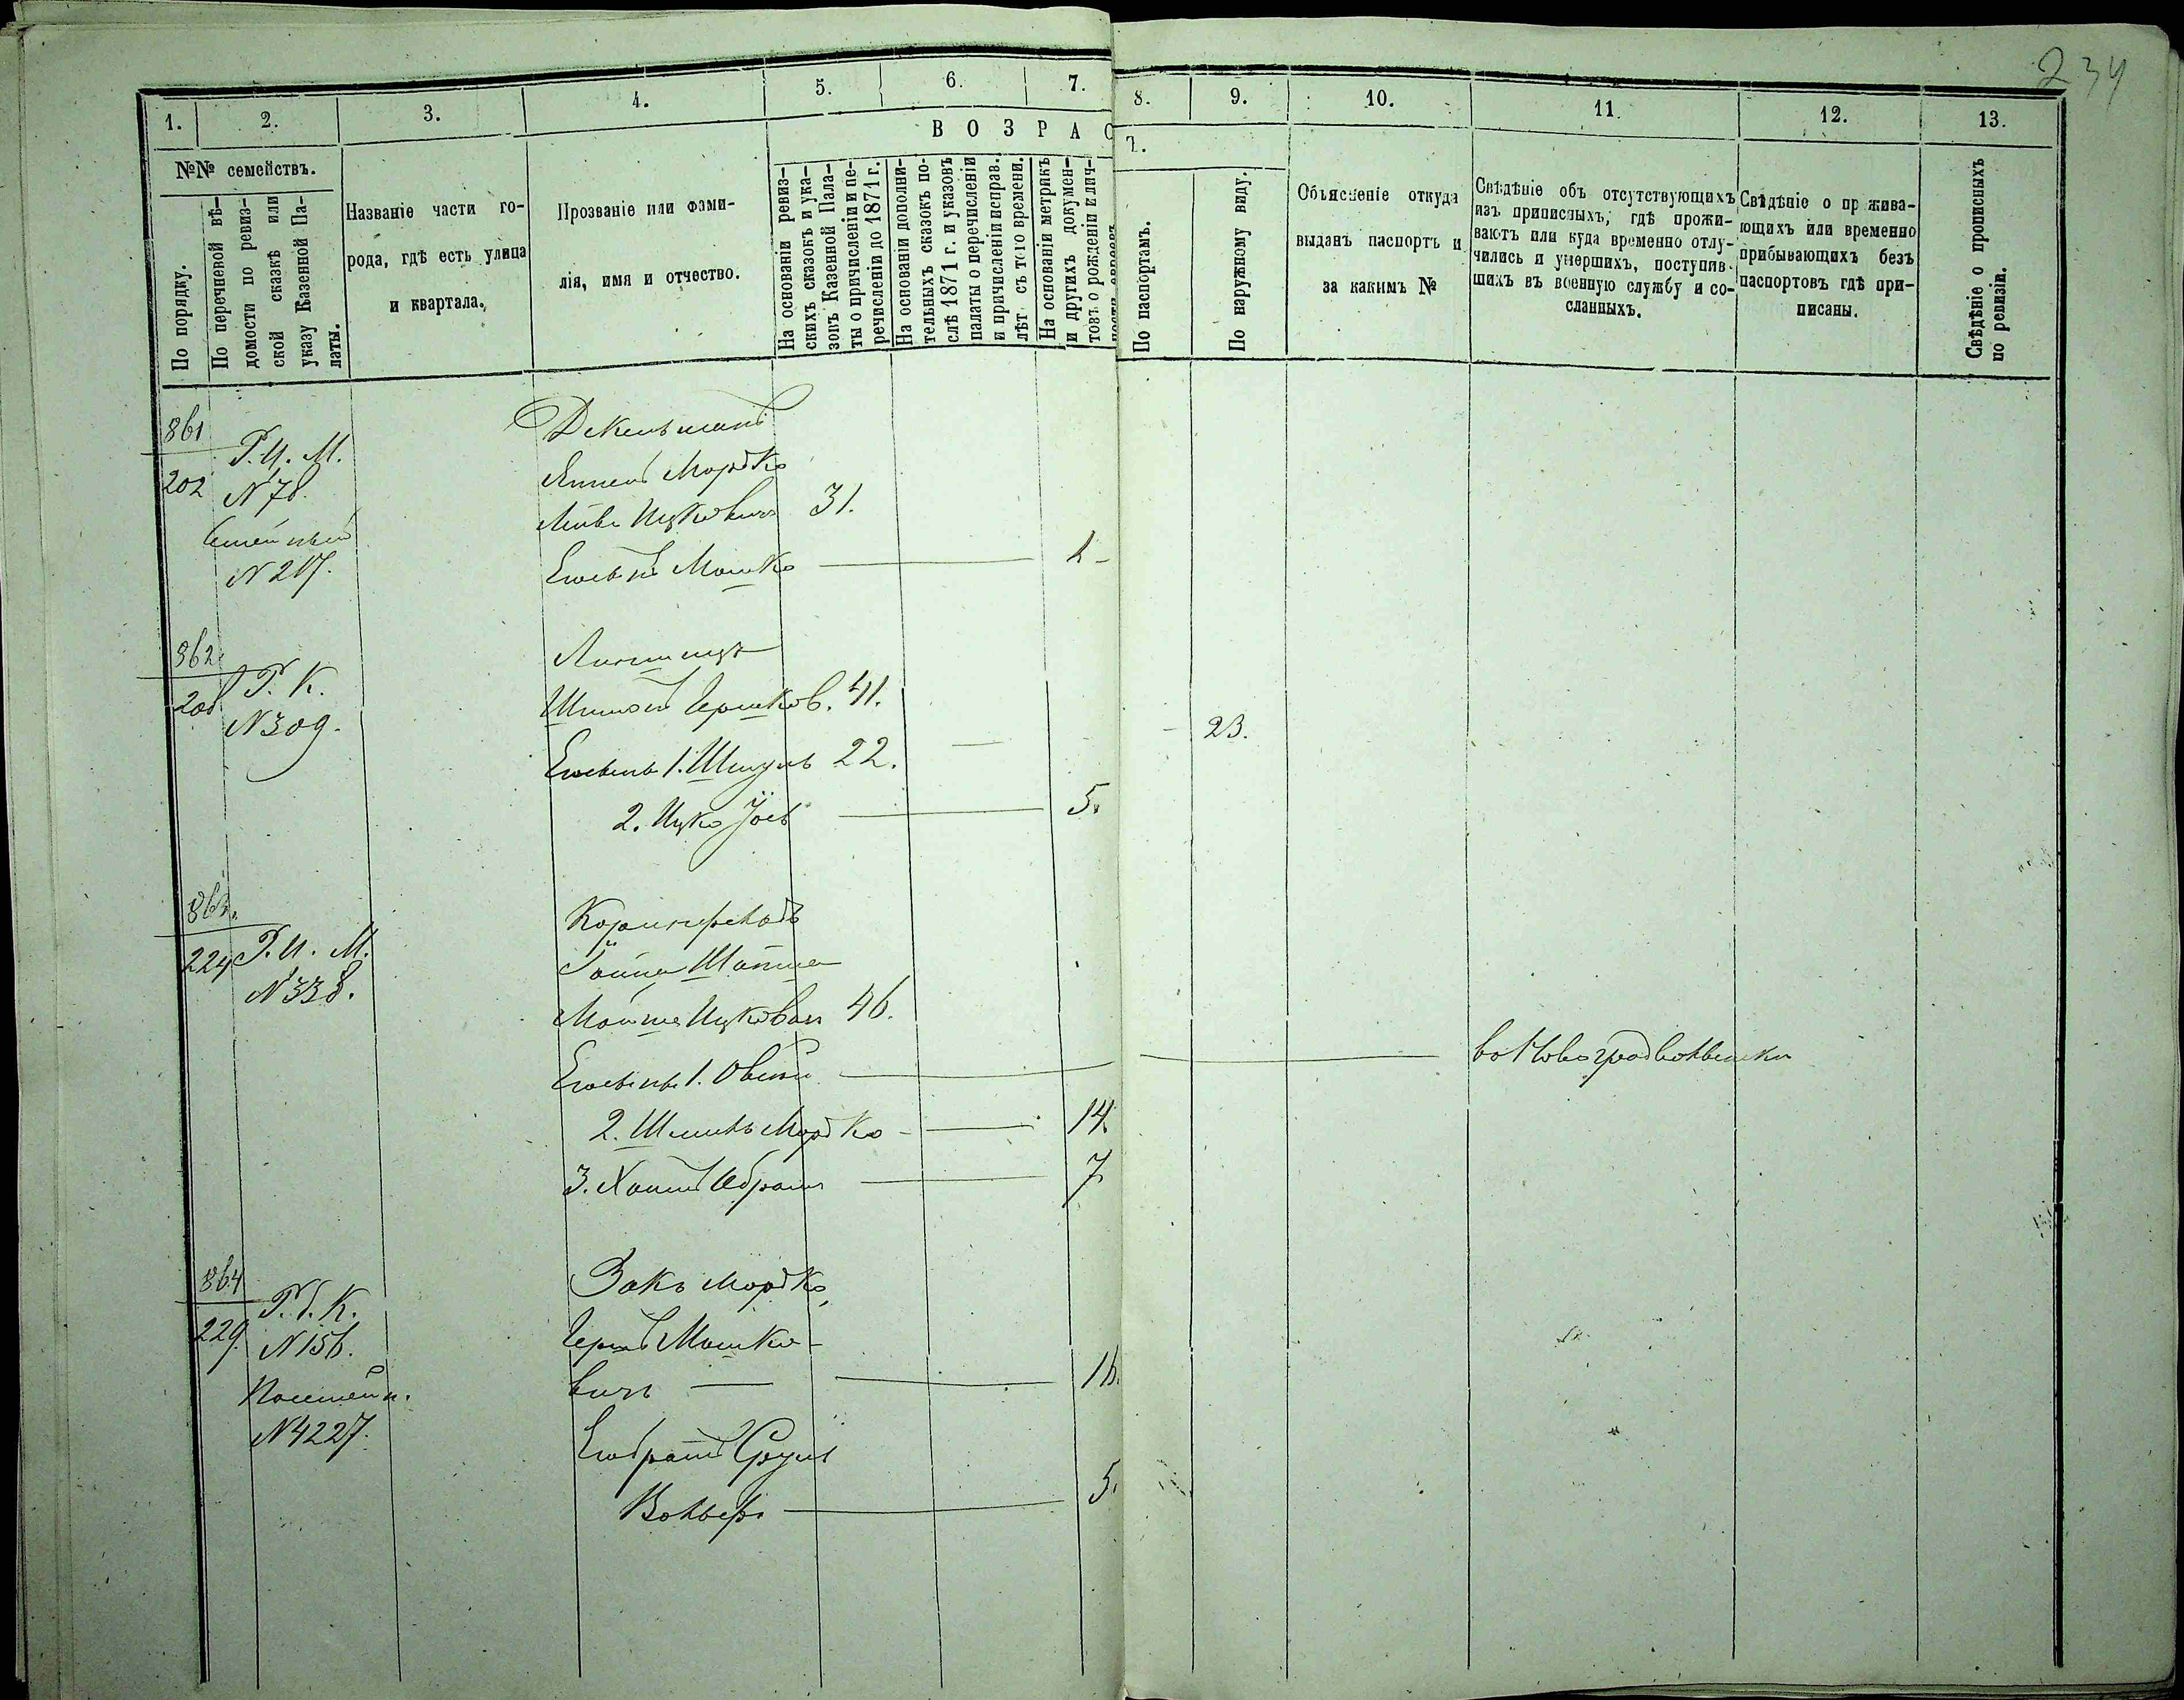 234
1. 2. 3. 4. 5. 6. 7. 8. 9. 10. 11. 12. 13.
В О З Р А С Т.
№№ семействъ.
По порядку.
По перечневой вѣ-
домости по ревиз-
ской сказкѣ или
указу Казенной Па-
латы.
Названіе части го-
рода, гдѣ есть улица
и квартала.
Прозваніе или фами-
лія, имя и отчество.
На основаніи ревиз-
скихъ сказокъ и ука-
зовъ Казенной Пала-
ты о причисленіи и пе-
речисленіи до 1871 г.
На основаніи дополни-
тельныхъ сказокъ по-
слѣ 1871 г. и указовъ
палаты о перечисленіи
и причисленіи исправ.
лѣт. съ того времени.
На основаніи метрикъ
и другихъ докумен-
товъ о рожденіи и лич-
ности евреевъ
По паспортамъ.
По наружному виду.
Объясненіе откуда
выданъ паспортъ и
за какимъ №
Свѣдѣніе объ отсутствующихъ
изъ приписныхъ, гдѣ прожи-
ваютъ или куда временно отлу-
чились и умершихъ, поступив-
шихъ въ военную службу и со-
сланныхъ.
Свѣдѣніе о пр жива-
ющихъ или временно
прибывающихъ безъ
паспортовъ гдѣ при-
писаны.
Свѣдѣніе о прописныхъ
по ревизіи.
861
202
Р. И. М.
N 78.
Семейный
N 217.
Мордко
Лейба Ицковичъ 31.
Его сынъ Мошко
862
Р. К.
N 309.
Гершков. 41.
Его сынъ 1. Шмуль 22. 23.
2. Ицко Іос 5.
863.
224
Р. И. М.
N 338.
Мойше Ицкович 46.
Его сынъ 1.
2. Шмиль Мордко 14.
3. Хаимъ Абрамъ 7
864
229.
N 156.
Посемейн.
N 4227.
Закъ Мордко,
Гершъ Мошко-
вичъ 16.
Его братъ Сруль
Вольфъ 5.